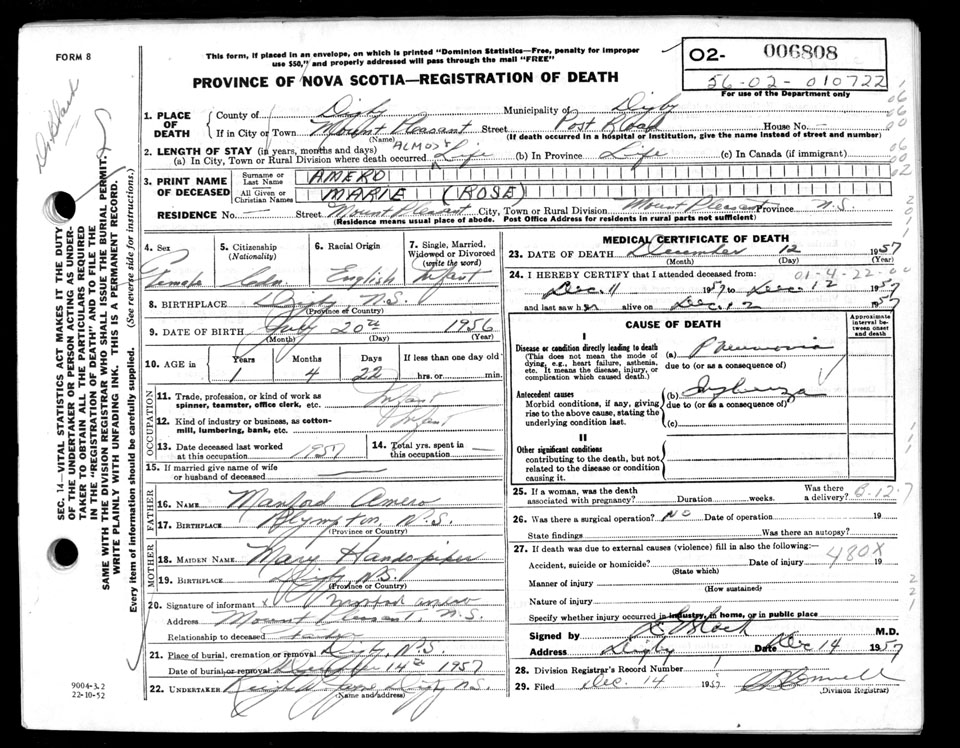 FORM 8
This form, if placed in an envelope, on which is printed "Dominion Statistics—Free, penalty for improper
use $50," and properly addressed will pass through the mail "FREE"
PROVINCE OF NOVA SCOTIA—REGISTRATION OF DEATH
02- 006808
56-02-010722
For use of the Department only
SEC. 14—VITAL STATISTICS ACT MAKES IT THE DUTY
OF THE UNDERTAKER OR PERSON ACTING AS UNDER-
TAKER TO OBTAIN ALL THE PARTICULARS REQUIRED
IN THE "REGISTRATION OF DEATH" AND TO FILE THE
SAME WITH THE DIVISION REGISTRAR WHO SHALL ISSUE THE BURIAL PERMIT.
WRITE PLAINLY WITH UNFADING INK. THIS IS A PERMANENT RECORD.
Every item of information should be carefully supplied. (See reverse side for instructions.)
1. PLACE OF DEATH
County of Digby Municipality of Digby
If in City or Town Mount Pleasant Street Post Road House No. —
(Name) (If death occurred in a hospital or institution, give the name instead of street and number)
2. LENGTH OF STAY (in years, months and days)
(a) In City, Town or Rural Division where death occurred ALMOST Life (b) In Province Life (c) In Canada (if immigrant)
3. PRINT NAME OF DECEASED
Surname or Last Name AMERO
All Given or Christian Names MARIE (ROSE)
RESIDENCE No. — Street Mount Pleasant City, Town or Rural Division Mount Pleasant Province N.S.
(Residence means usual place of abode. Post Office Address for residents in rural parts not sufficient)
4. Sex Female
5. Citizenship (Nationality) Cdn
6. Racial Origin English
7. Single, Married, Widowed or Divorced (write the word) Infant
8. BIRTHPLACE Digby N.S.
(Province or Country)
9. DATE OF BIRTH July 20th 1956
(Month) (Day) (Year)
10. AGE Years Months Days If less than one day old
1 4 22 hrs. or min.
OCCUPATION
11. Trade, profession, or kind of work as spinner, teamster, office clerk, etc. Infant
12. Kind of industry or business, as cotton-mill, lumbering, bank, etc. Infant
13. Date deceased last worked at this occupation 1957
14. Total yrs. spent in this occupation —
15. If married give name of wife or husband of deceased —
FATHER
16. NAME Manford Amero
17. BIRTHPLACE Plympton, N.S.
(Province or Country)
MOTHER
18. MAIDEN NAME Mary Handspiker
19. BIRTHPLACE Digby N.S.
(Province or Country)
20. Signature of informant x
Address Mount Pleasant, N.S.
Relationship to deceased Father
21. Place of burial, cremation or removal Digby, N.S.
Date of burial or removal December 14th 1957
22. UNDERTAKER Digby N.S.
(Name and address)
9004-3.2
22-10-52
MEDICAL CERTIFICATE OF DEATH
23. DATE OF DEATH December 12 1957
(Month) (Day) (Year)
24. I HEREBY CERTIFY that I attended deceased from: 01-4-22-00
Dec. 11 1957 to Dec. 12 1957
and last saw her alive on Dec. 12 1957
CAUSE OF DEATH
Approximate interval between onset and death
I
Disease or condition directly leading to death
(This does not mean the mode of dying, e.g., heart failure, asthenia, etc. It means the disease, injury, or complication which caused death.)
(a) Pneumonia
due to (or as a consequence of)
Antecedent causes
Morbid conditions, if any, giving rise to the above cause, stating the underlying condition last.
(b) Influenza
due to (or as a consequence of)
(c)
II
Other significant conditions
contributing to the death, but not related to the disease or condition causing it.
25. If a woman, was the death associated with pregnancy? Duration weeks. Was there a delivery? 8-12-7
26. Was there a surgical operation? NO Date of operation 19
State findings Was there an autopsy?
27. If death was due to external causes (violence) fill in also the following:— 480X
Accident, suicide or homicide? Date of injury 19
(State which)
Manner of injury
(How sustained)
Nature of injury
Specify whether injury occurred in industry, in home, or in public place
Signed by M.D.
Address Digby Date Dec 14 1957
28. Division Registrar's Record Number
29. Filed Dec. 14 1957
(Division Registrar)